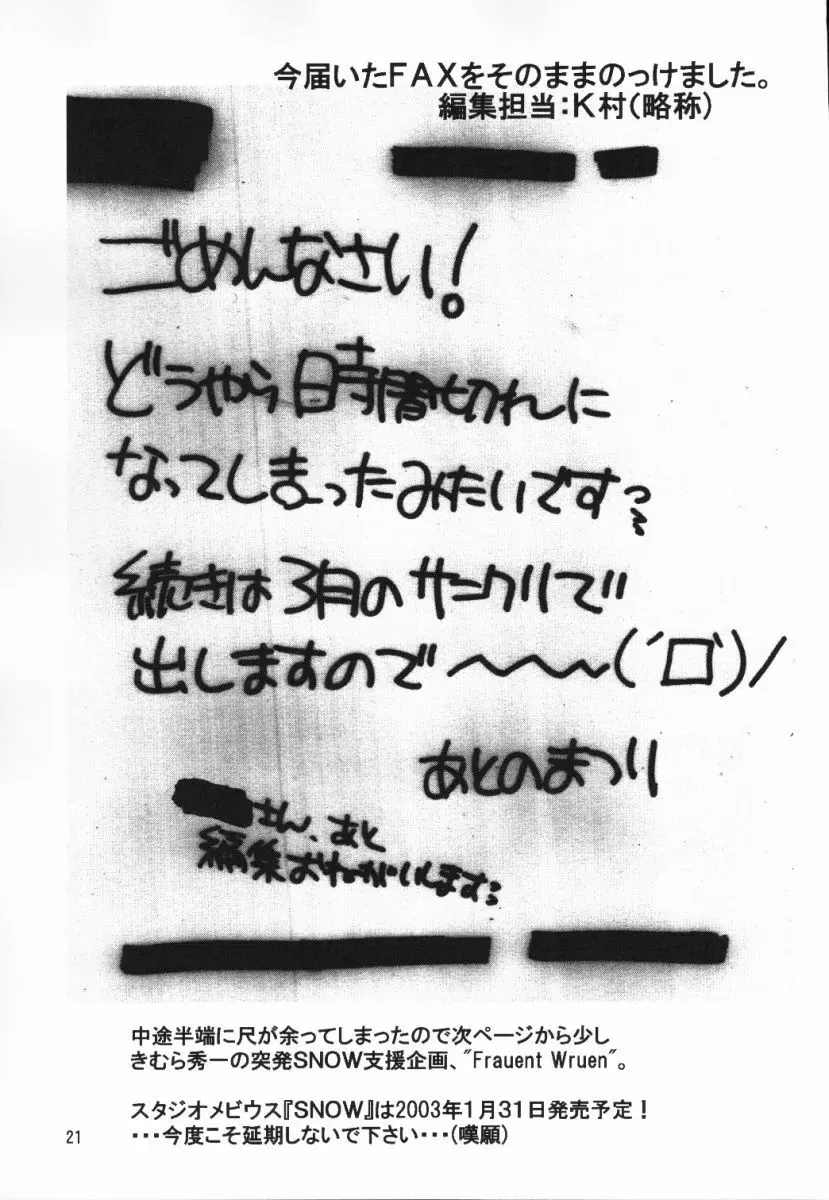 今届いたFAXをそのままのっけました。
編集担当:K村(略称)
ごめんなさい!
どうやら時間切れに
なってしまったみたいです
続きは3月のサンクリで
出しますので〜〜〜(´ロ`)/
あとのまつり
さん、あと
編集おねがいします
中途半端に尺が余ってしまったので次ページから少し
きむら秀一の突発SNOW支援企画、"Frauent Wruen"。
スタジオメビウス『SNOW』は2003年1月31日発売予定!
・・・今度こそ延期しないで下さい・・・(嘆願)
21